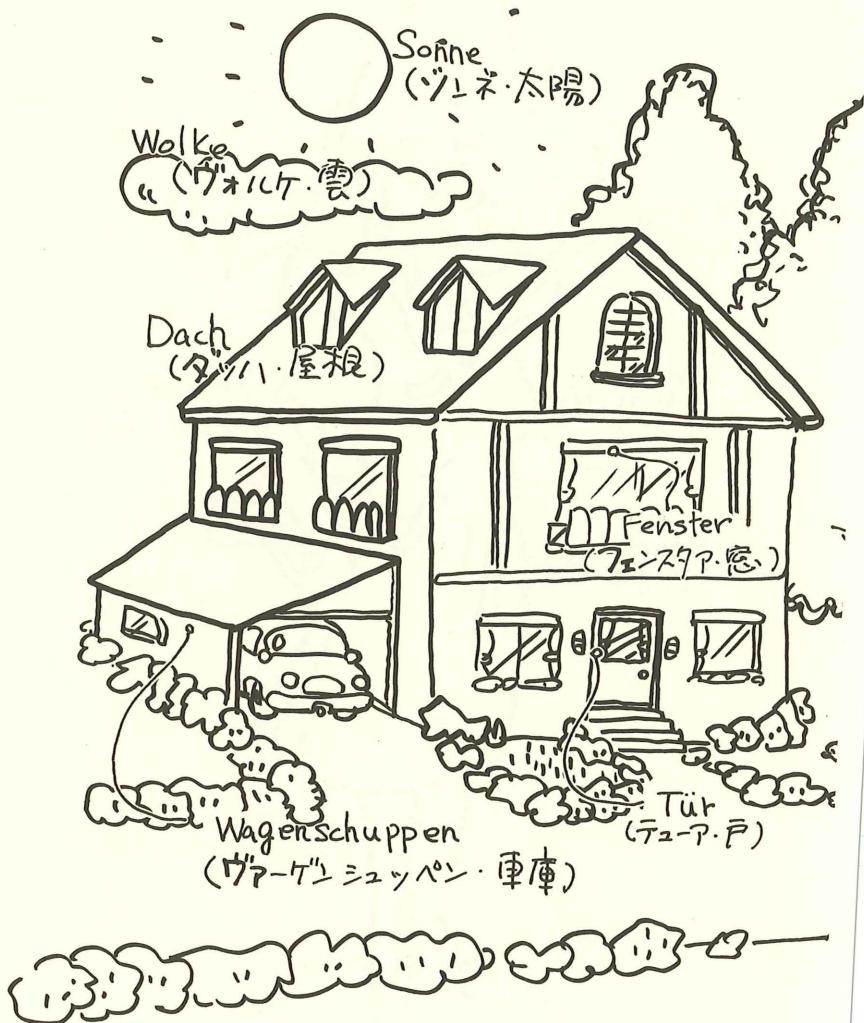 Sonne
(ゾンネ・太陽)
Wolke
(ヴォルケ・雲)
Dach
(ダッハ・屋根)
Fenster
(フェンスタア・窓)
Tür
(テューア・戸)
Wagenschuppen
(ヴァーゲンシュッペン・車庫)